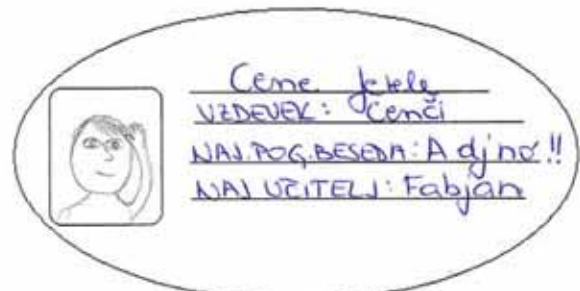 Cene Jekele
VZDEVEK: Cenči
NAJ.POG.BESEDA: A dj no!!
NAJ UČITELJ: Fabjan